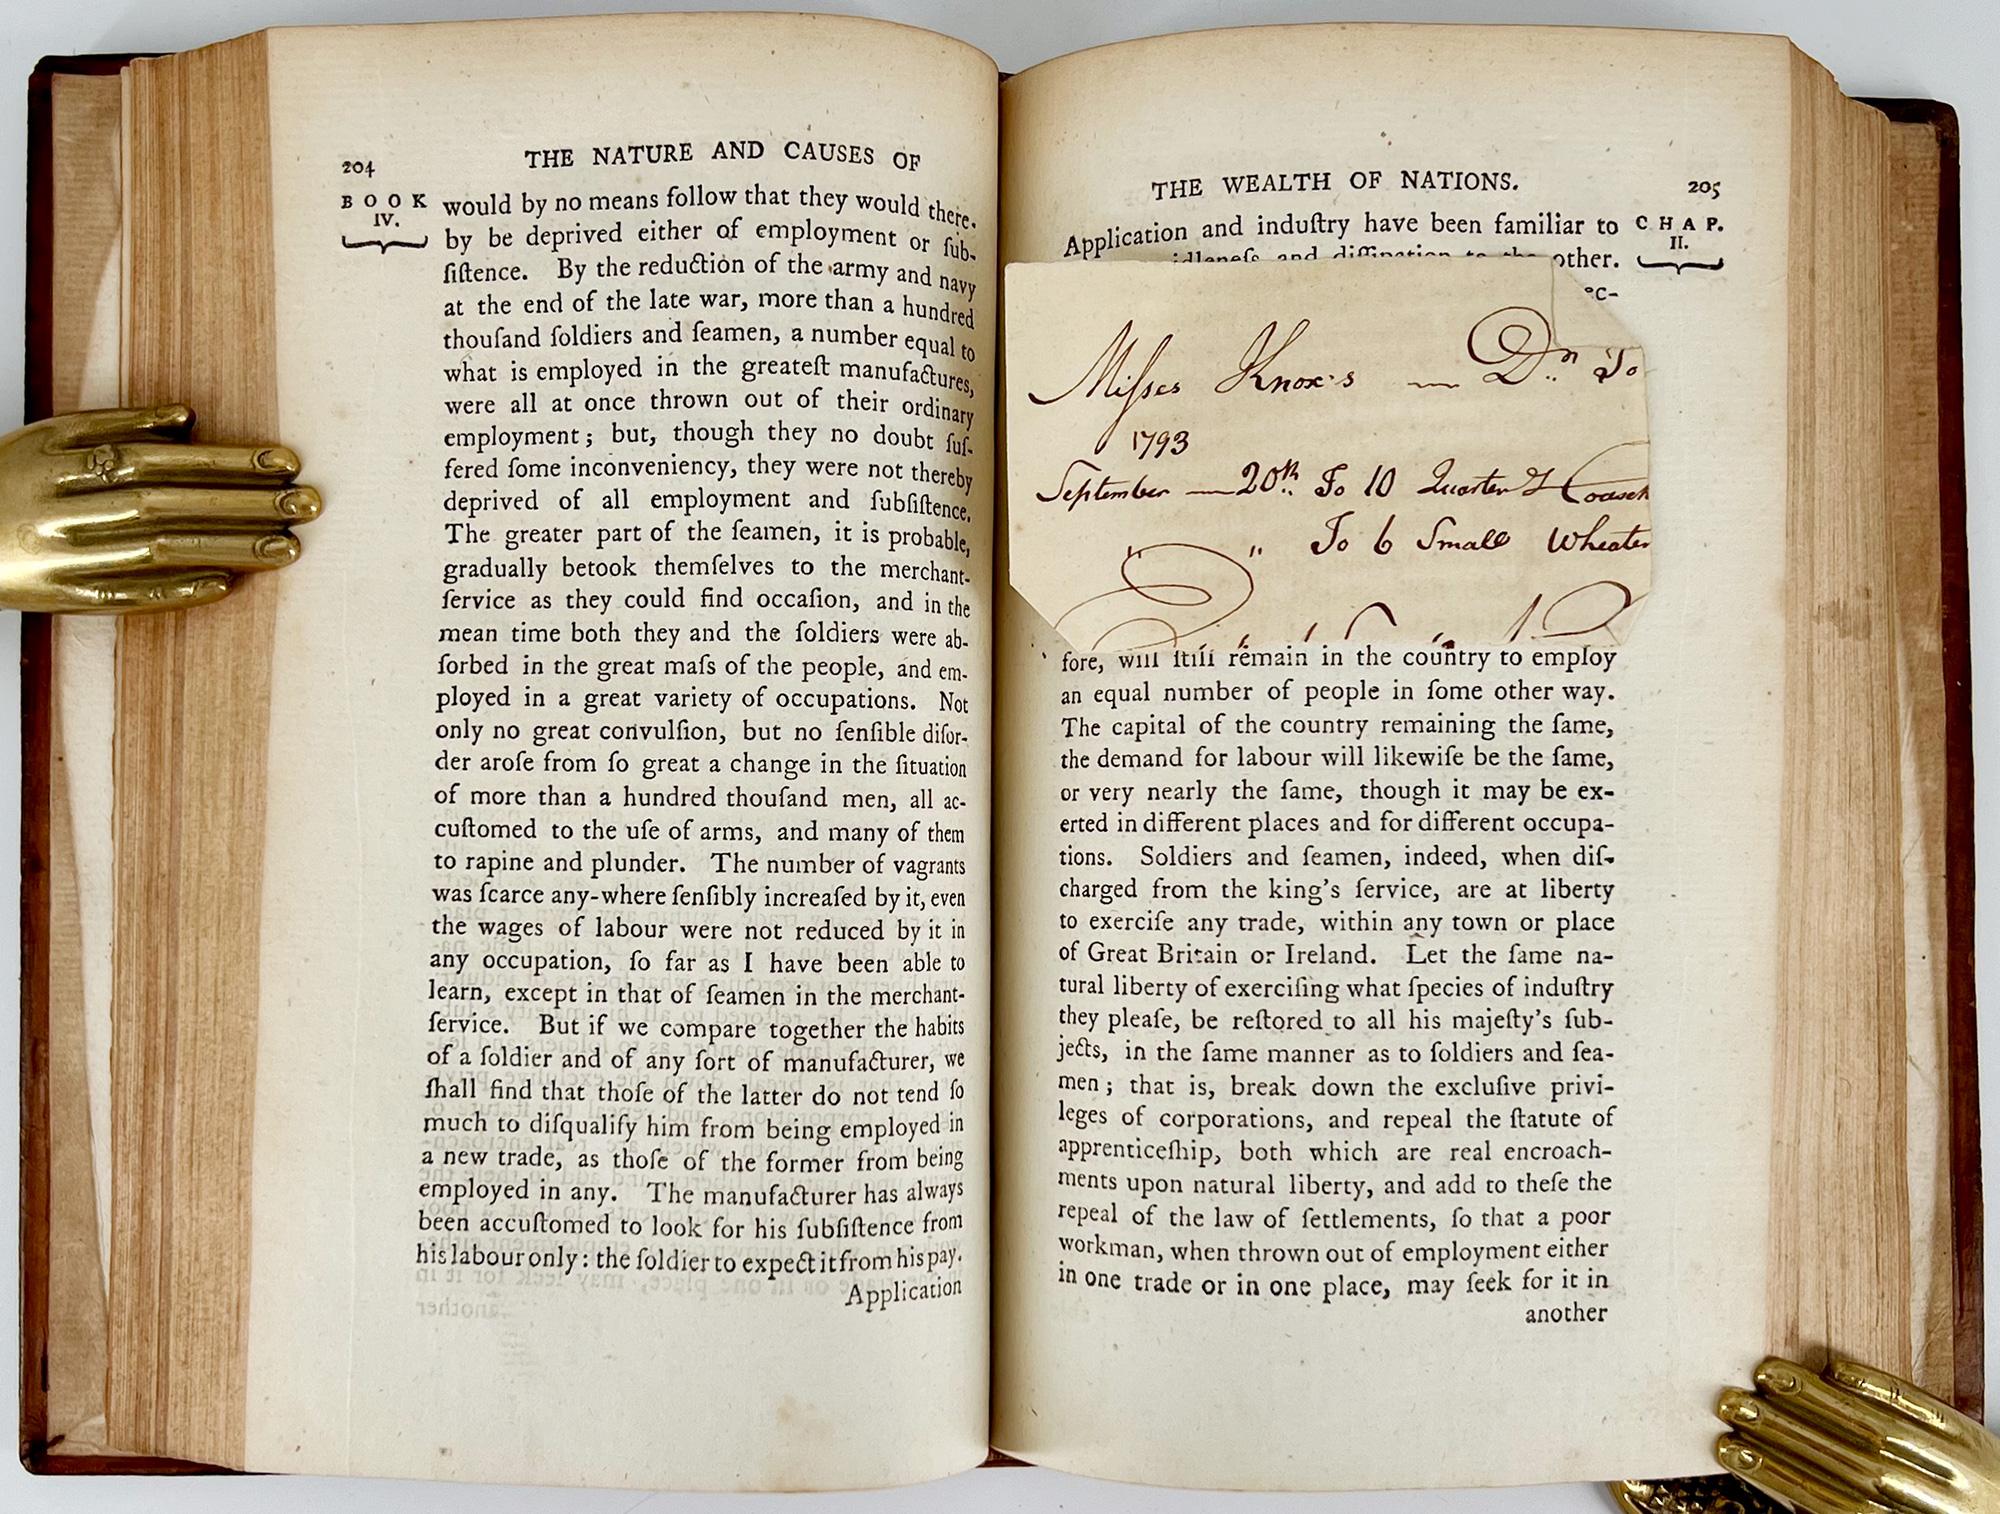 204
THE NATURE AND CAUSES OF
BOOK
IV.
would by no means follow that they would there-
by be deprived either of employment or ſub-
ſiſtence. By the reduction of the army and navy
at the end of the late war, more than a hundred
thouſand ſoldiers and ſeamen, a number equal to
what is employed in the greateſt manufactures,
were all at once thrown out of their ordinary
employment; but, though they no doubt ſuf-
fered ſome inconveniency, they were not thereby
deprived of all employment and ſubſiſtence.
The greater part of the ſeamen, it is probable,
gradually betook themſelves to the merchant-
ſervice as they could find occaſion, and in the
mean time both they and the ſoldiers were ab-
ſorbed in the great maſs of the people, and em-
ployed in a great variety of occupations. Not
only no great convulſion, but no ſenſible diſor-
der aroſe from ſo great a change in the ſituation
of more than a hundred thouſand men, all ac-
cuſtomed to the uſe of arms, and many of them
to rapine and plunder. The number of vagrants
was ſcarce any-where ſenſibly increaſed by it, even
the wages of labour were not reduced by it in
any occupation, ſo far as I have been able to
learn, except in that of ſeamen in the merchant-
ſervice. But if we compare together the habits
of a ſoldier and of any ſort of manufacturer, we
ſhall find that thoſe of the latter do not tend ſo
much to diſqualify him from being employed in
a new trade, as thoſe of the former from being
employed in any. The manufacturer has always
been accuſtomed to look for his ſubſiſtence from
his labour only: the ſoldier to expect it from his pay.
Application
THE WEALTH OF NATIONS.
205
CHAP.
II.
Application and induſtry have been familiar to
idleneſs and diſſipation to the other.
ec-
Miſses Knox's — Dr. To
1793
September — 20th To 10 Quarter
" " To 6 Small Wheaten
fore, will ſtill remain in the country to employ
an equal number of people in ſome other way.
The capital of the country remaining the ſame,
the demand for labour will likewiſe be the ſame,
or very nearly the ſame, though it may be ex-
erted in different places and for different occupa-
tions. Soldiers and ſeamen, indeed, when diſ-
charged from the king's ſervice, are at liberty
to exerciſe any trade, within any town or place
of Great Britain or Ireland. Let the ſame na-
tural liberty of exerciſing what ſpecies of induſtry
they pleaſe, be reſtored to all his majeſty's ſub-
jects, in the ſame manner as to ſoldiers and ſea-
men; that is, break down the excluſive privi-
leges of corporations, and repeal the ſtatute of
apprenticeſhip, both which are real encroach-
ments upon natural liberty, and add to theſe the
repeal of the law of ſettlements, ſo that a poor
workman, when thrown out of employment either
in one trade or in one place, may ſeek for it in
another